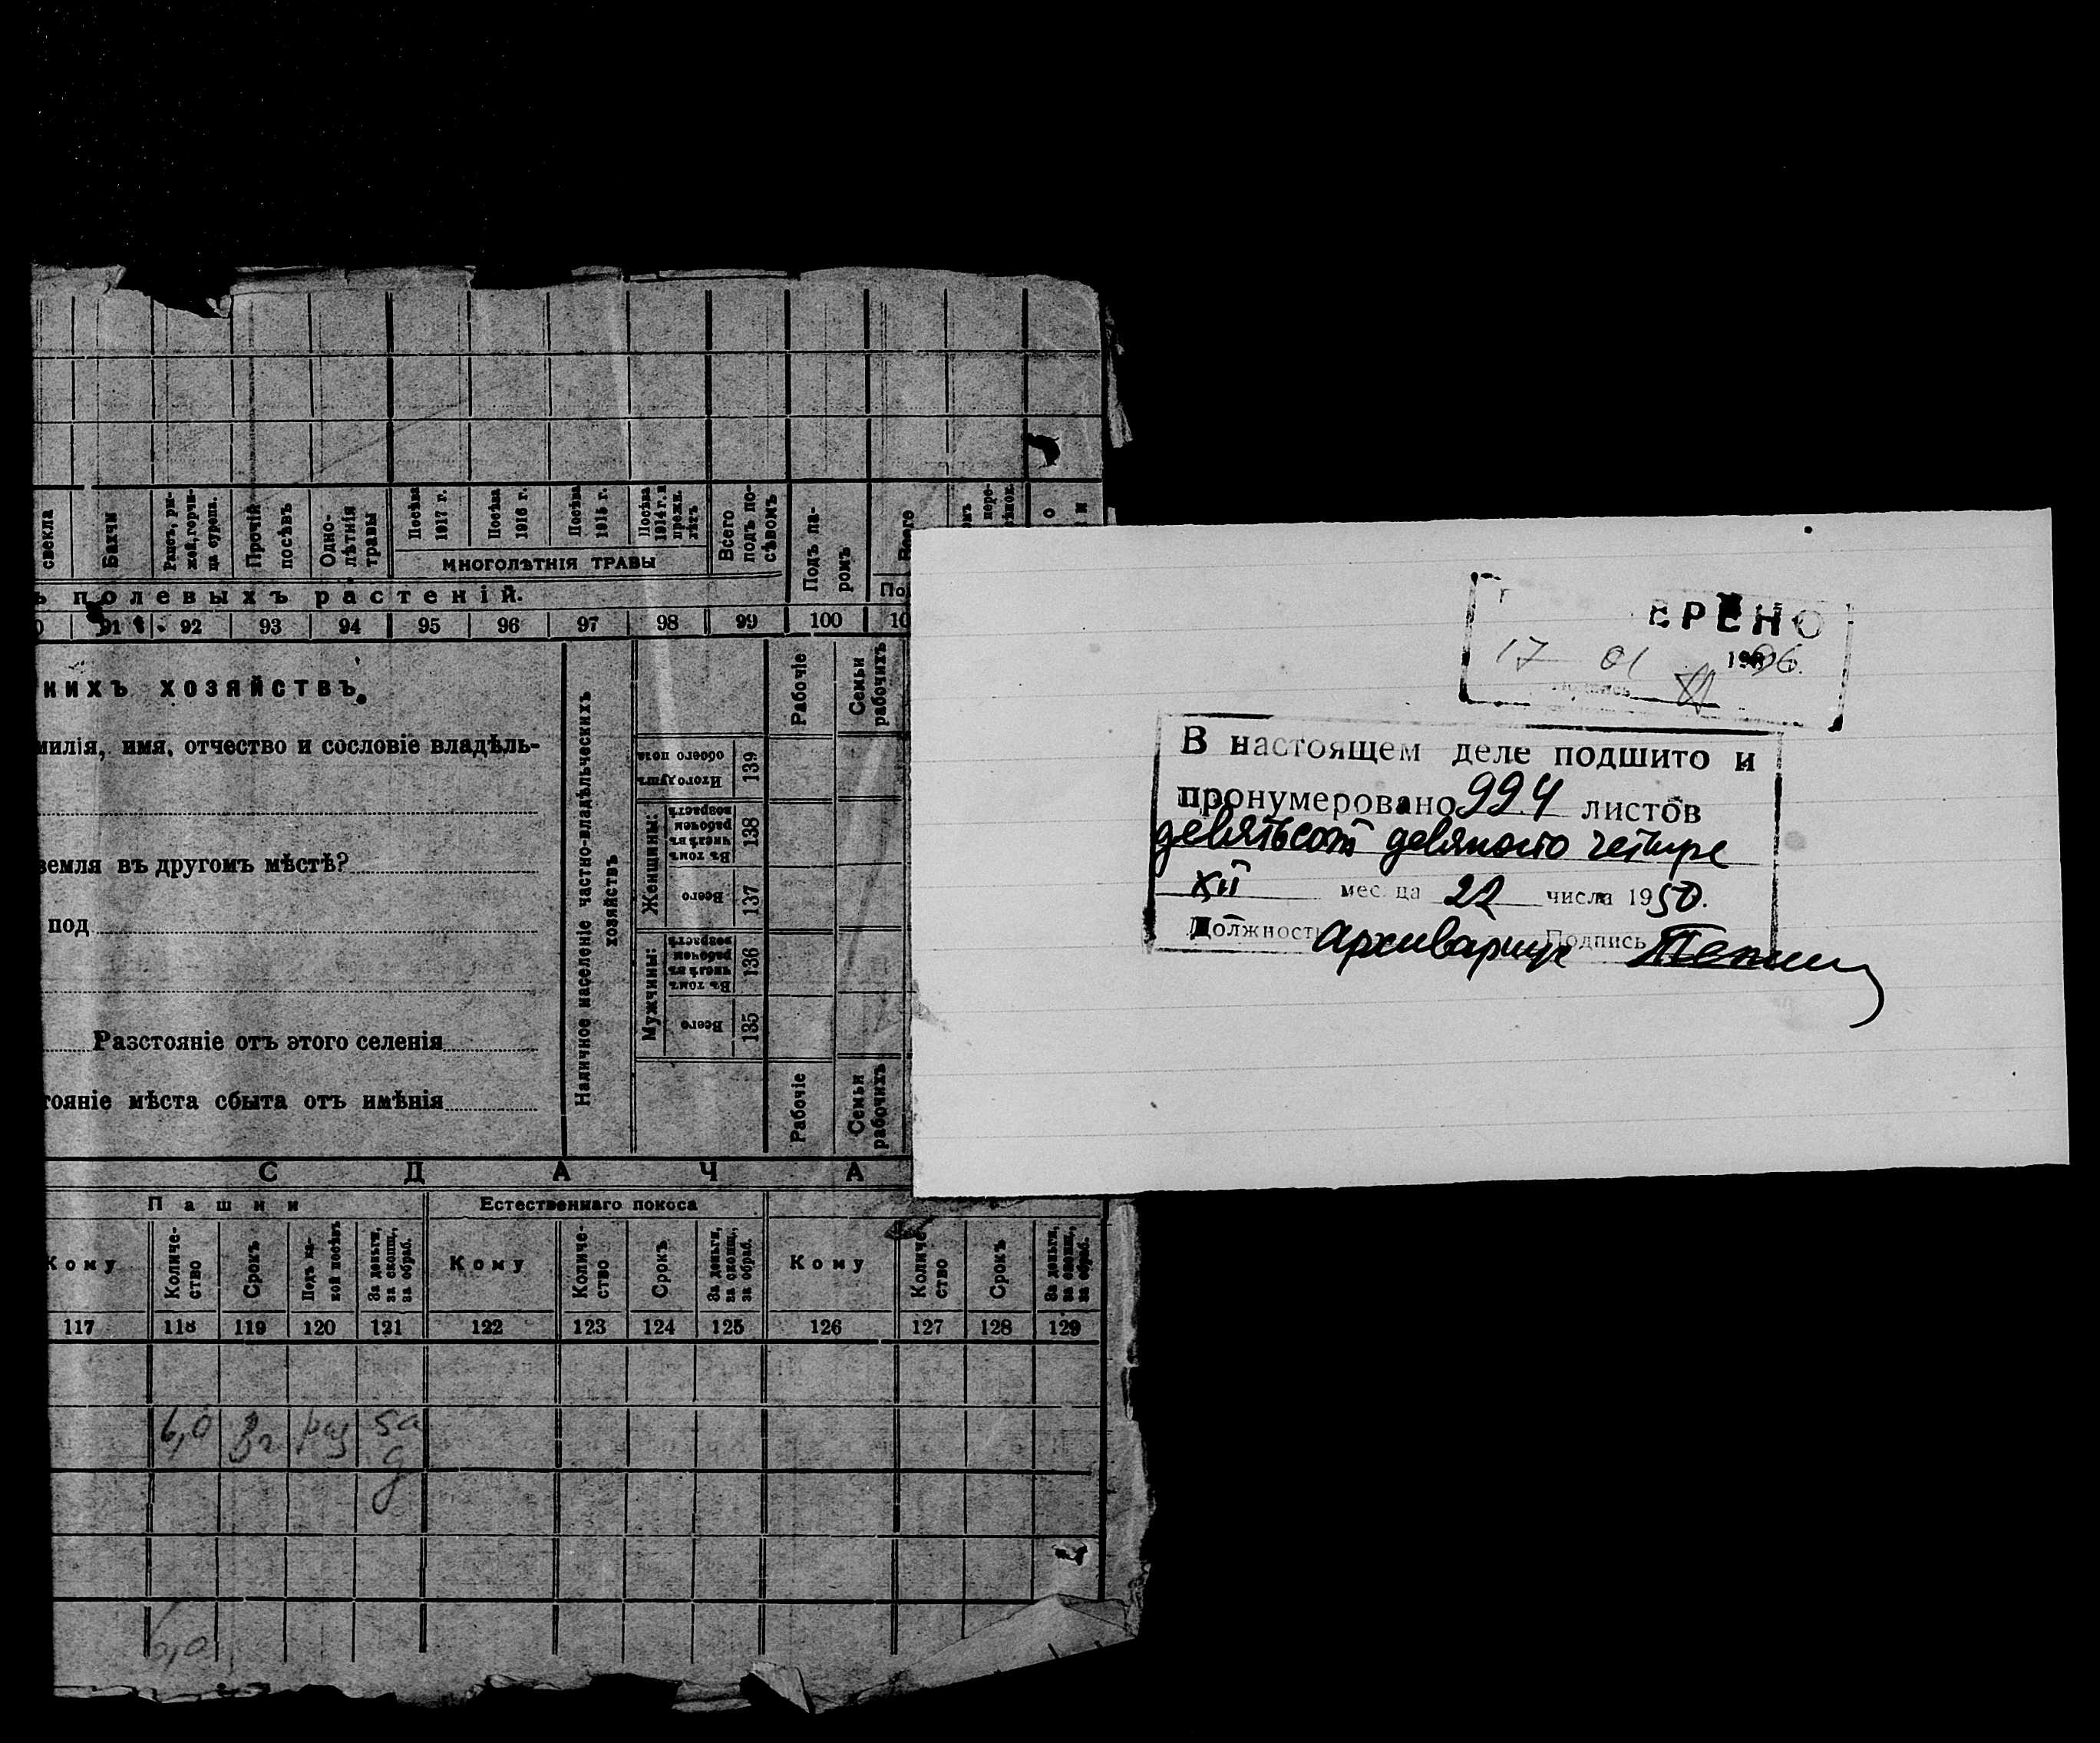 свекла
Бахчи
Рапсъ, ры-
жей, горчи-
ца суреп.
Прочій
посѣвъ
Одно-
лѣтнія
травы
Посѣва
1917 г.
Посѣва
1916 г.
Посѣва
1915 г.
Посѣва
1914 г. и
прежн.
лѣтъ
Всего
подъ по-
сѣвомъ
Подъ па-
ромъ
Всего
МНОГОЛѢТНІЯ ТРАВЫ
ь полевыхъ растеній.
91 92 93 94 95 96 97 98 99 100 10
кихъ хозяйствъ.
милія, имя, отчество и сословіе владѣль-
земля въ другомъ мѣстѣ?
под
Разстояніе отъ этого селенія
тояніе мѣста сбыта отъ имѣнія
Наличное населеніе частно-владѣльческихъ
хозяйствъ
Итого душъ
обоего пола
139
Женщины:
Въ томъ
числѣ въ
рабочем
возрастѣ
138
Всего
137
Мужчины:
Въ томъ
числѣ въ
рабочем
возрастѣ
136
Всего
135
Рабочіе
Семьи
рабочихъ
Рабочіе
Семьи
рабочихъ
С Д А Ч А
Пашни
Естественнаго покоса
Кому
Количе-
ство
Срокъ
Подъ ка-
кой посѣвъ
За деньги,
за скопщ.,
за обраб.
Кому
Количе-
ство
Срокъ
За деньги,
за скопщ.,
за обраб.
Кому
Количе-
ство
Срокъ
За деньги,
за скопщ.,
за обраб.
117 118 119 120 121 122 123 124 125 126 127 128 129
6,0
за
д
6,0
ЕРЕНО
17 01 1996.
В настоящем деле подшито и
пронумеровано 994 листов
девятьсот девяносто четыре
XII месяца 22 числа 1950.
Должность архивариус Подпись